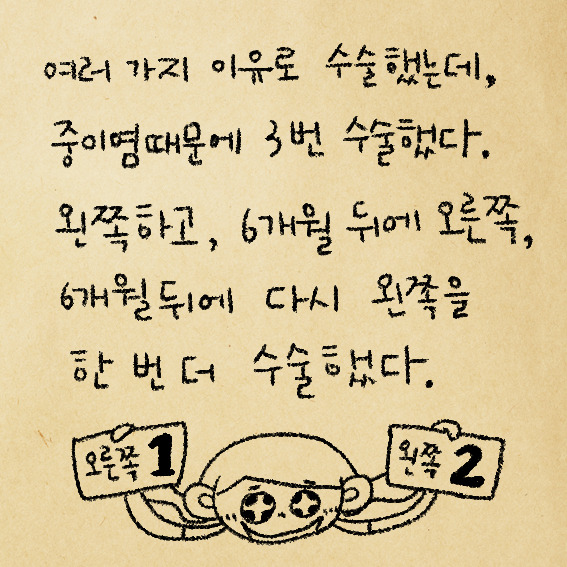 여러 가지 이유로 수술했는데,
중이염때문에 3번 수술했다.
왼쪽하고, 6개월 뒤에 오른쪽,
6개월뒤에 다시 왼쪽을
한 번 더 수술했다.
오른쪽 1
왼쪽 2